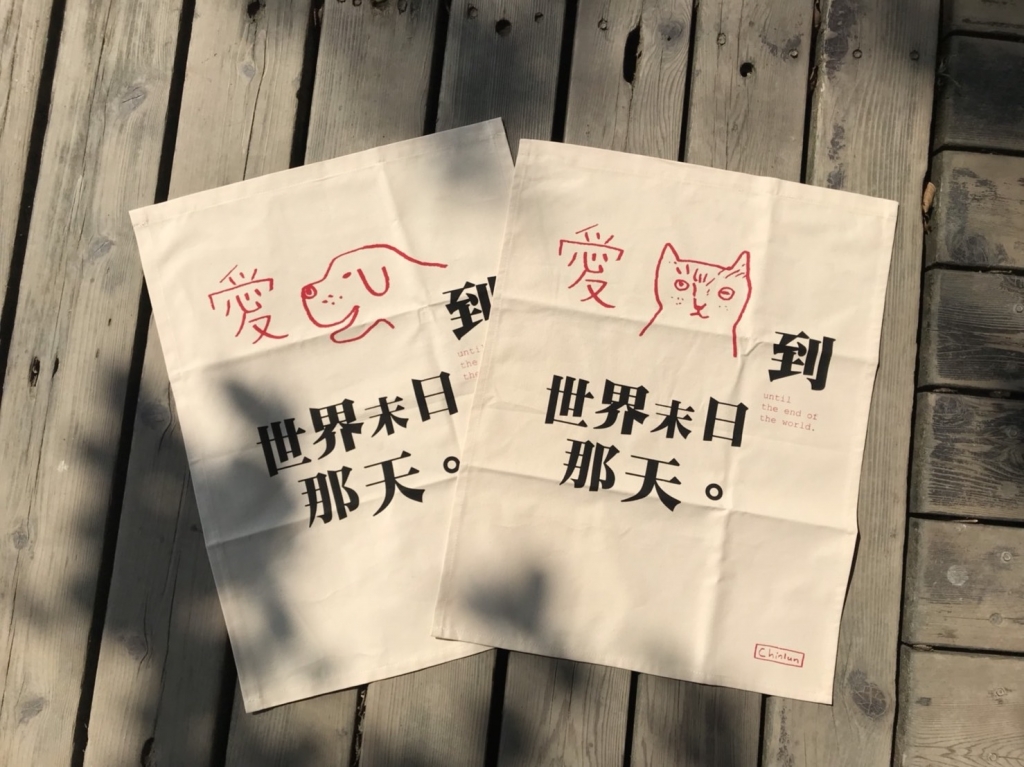 愛
到
until
the
the
世界末日
那天。
愛
到
until
the end of
the world.
世界末日
那天。
Chinlun